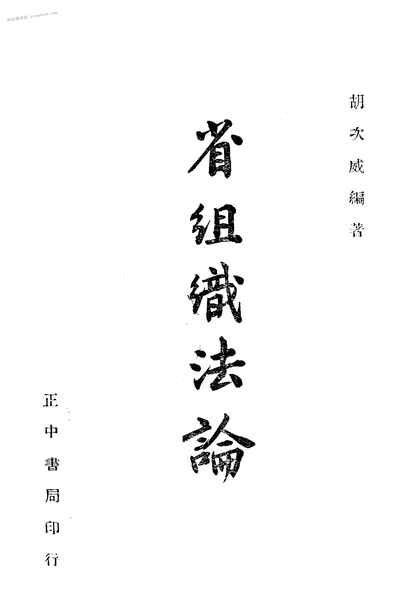 胡次威編著
省組織法論
正中書局印行